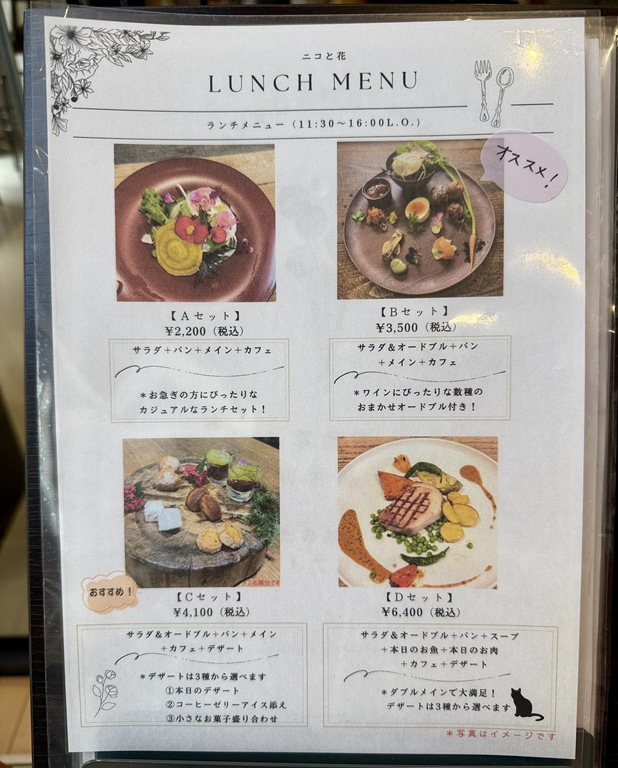 ニコと花
LUNCH MENU
ランチメニュー（11:30～16:00L.O.）
オススメ！
【Aセット】
¥2,200（税込）
サラダ＋パン＋メイン＋カフェ
＊お急ぎの方にぴったりな
カジュアルなランチセット！
【Bセット】
¥3,500（税込）
サラダ＆オードブル＋パン
＋メイン＋カフェ
＊ワインにぴったりな数種の
おまかせオードブル付き！
おすすめ！
【Cセット】
¥4,100（税込）
サラダ＆オードブル＋パン＋メイン
＋カフェ＋デザート
＊デザートは3種から選べます
①本日のデザート
②コーヒーゼリーアイス添え
③小さなお菓子盛り合わせ
【Dセット】
¥6,400（税込）
サラダ＆オードブル＋パン＋スープ
＋本日のお魚＋本日のお肉
＋カフェ＋デザート
＊ダブルメインで大満足！
デザートは3種から選べます
＊写真はイメージです